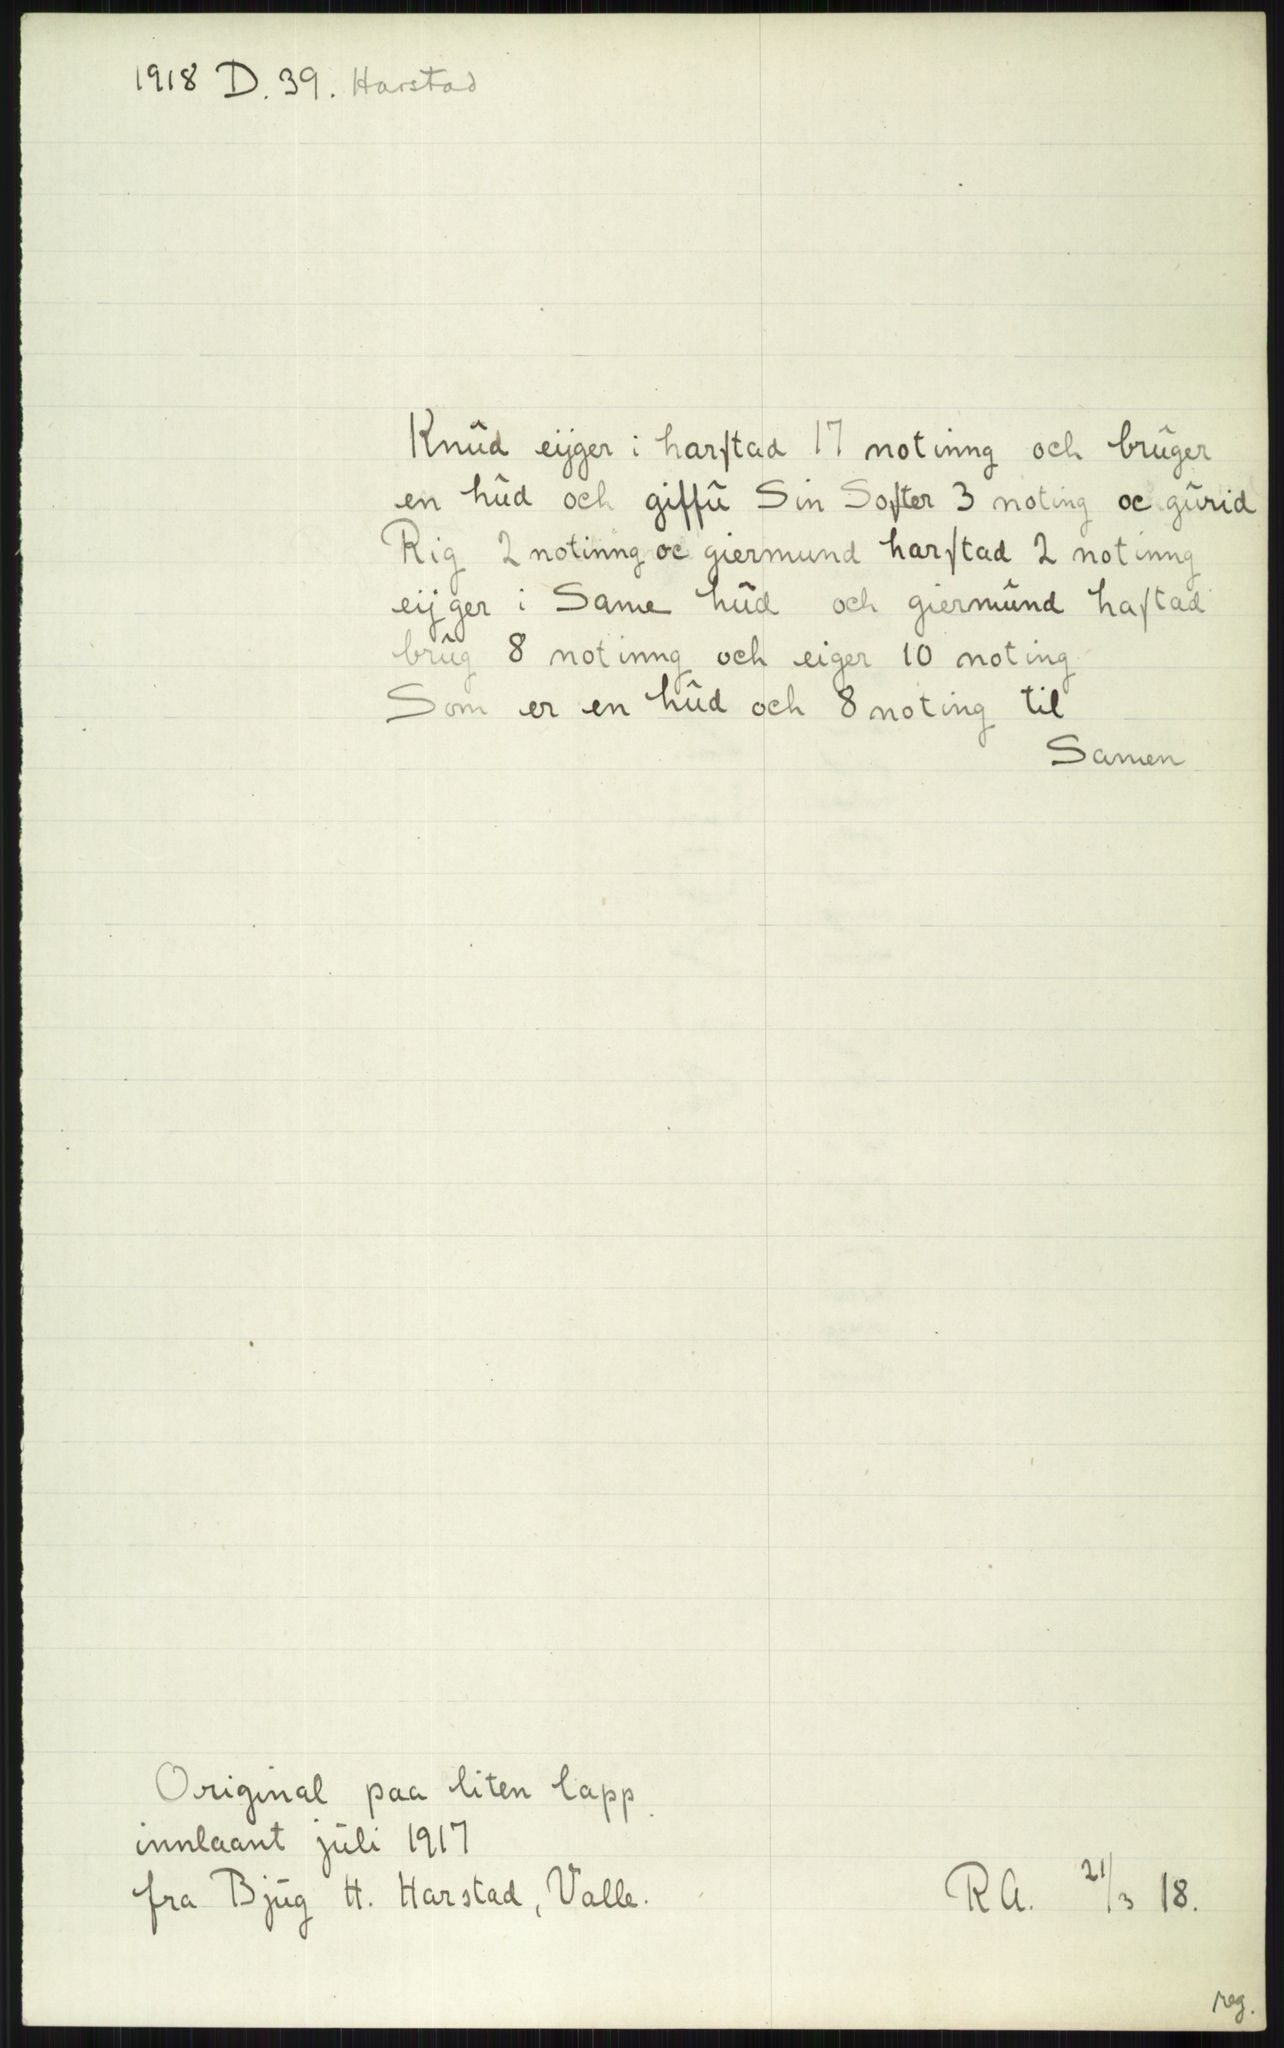 1918 D. 39. Harstad
Knûd eijger i harſtad 17 notinng och brûger
en hûd och giffû Sin Soſter 3 noting oc gûrid
Rig 2 notinng oc giermund harſtad 2 notinng
eijger i Same hûd och giermûnd haſtad
brûg 8 notinng och eiger 10 noting
Som er en hûd och 8 noting til
Samen
Original paa liten lapp
innlaant jūli 1917
fra Bjūg H. Harstad, Valle.
R A. 21/3 18.
reg.